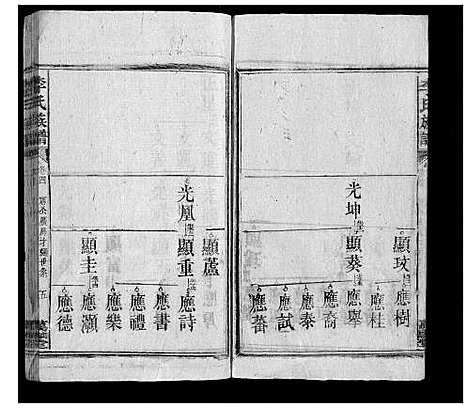 李氏族譜
光坤
顯玟
顯葵
應樹
應桂
應舉
應裔
應泰
應試
應蕃
光凰
顯蘆
顯重
顯圭
應詩
應書
應禮
應樂
應灝
應德
李氏族譜
卷四
五